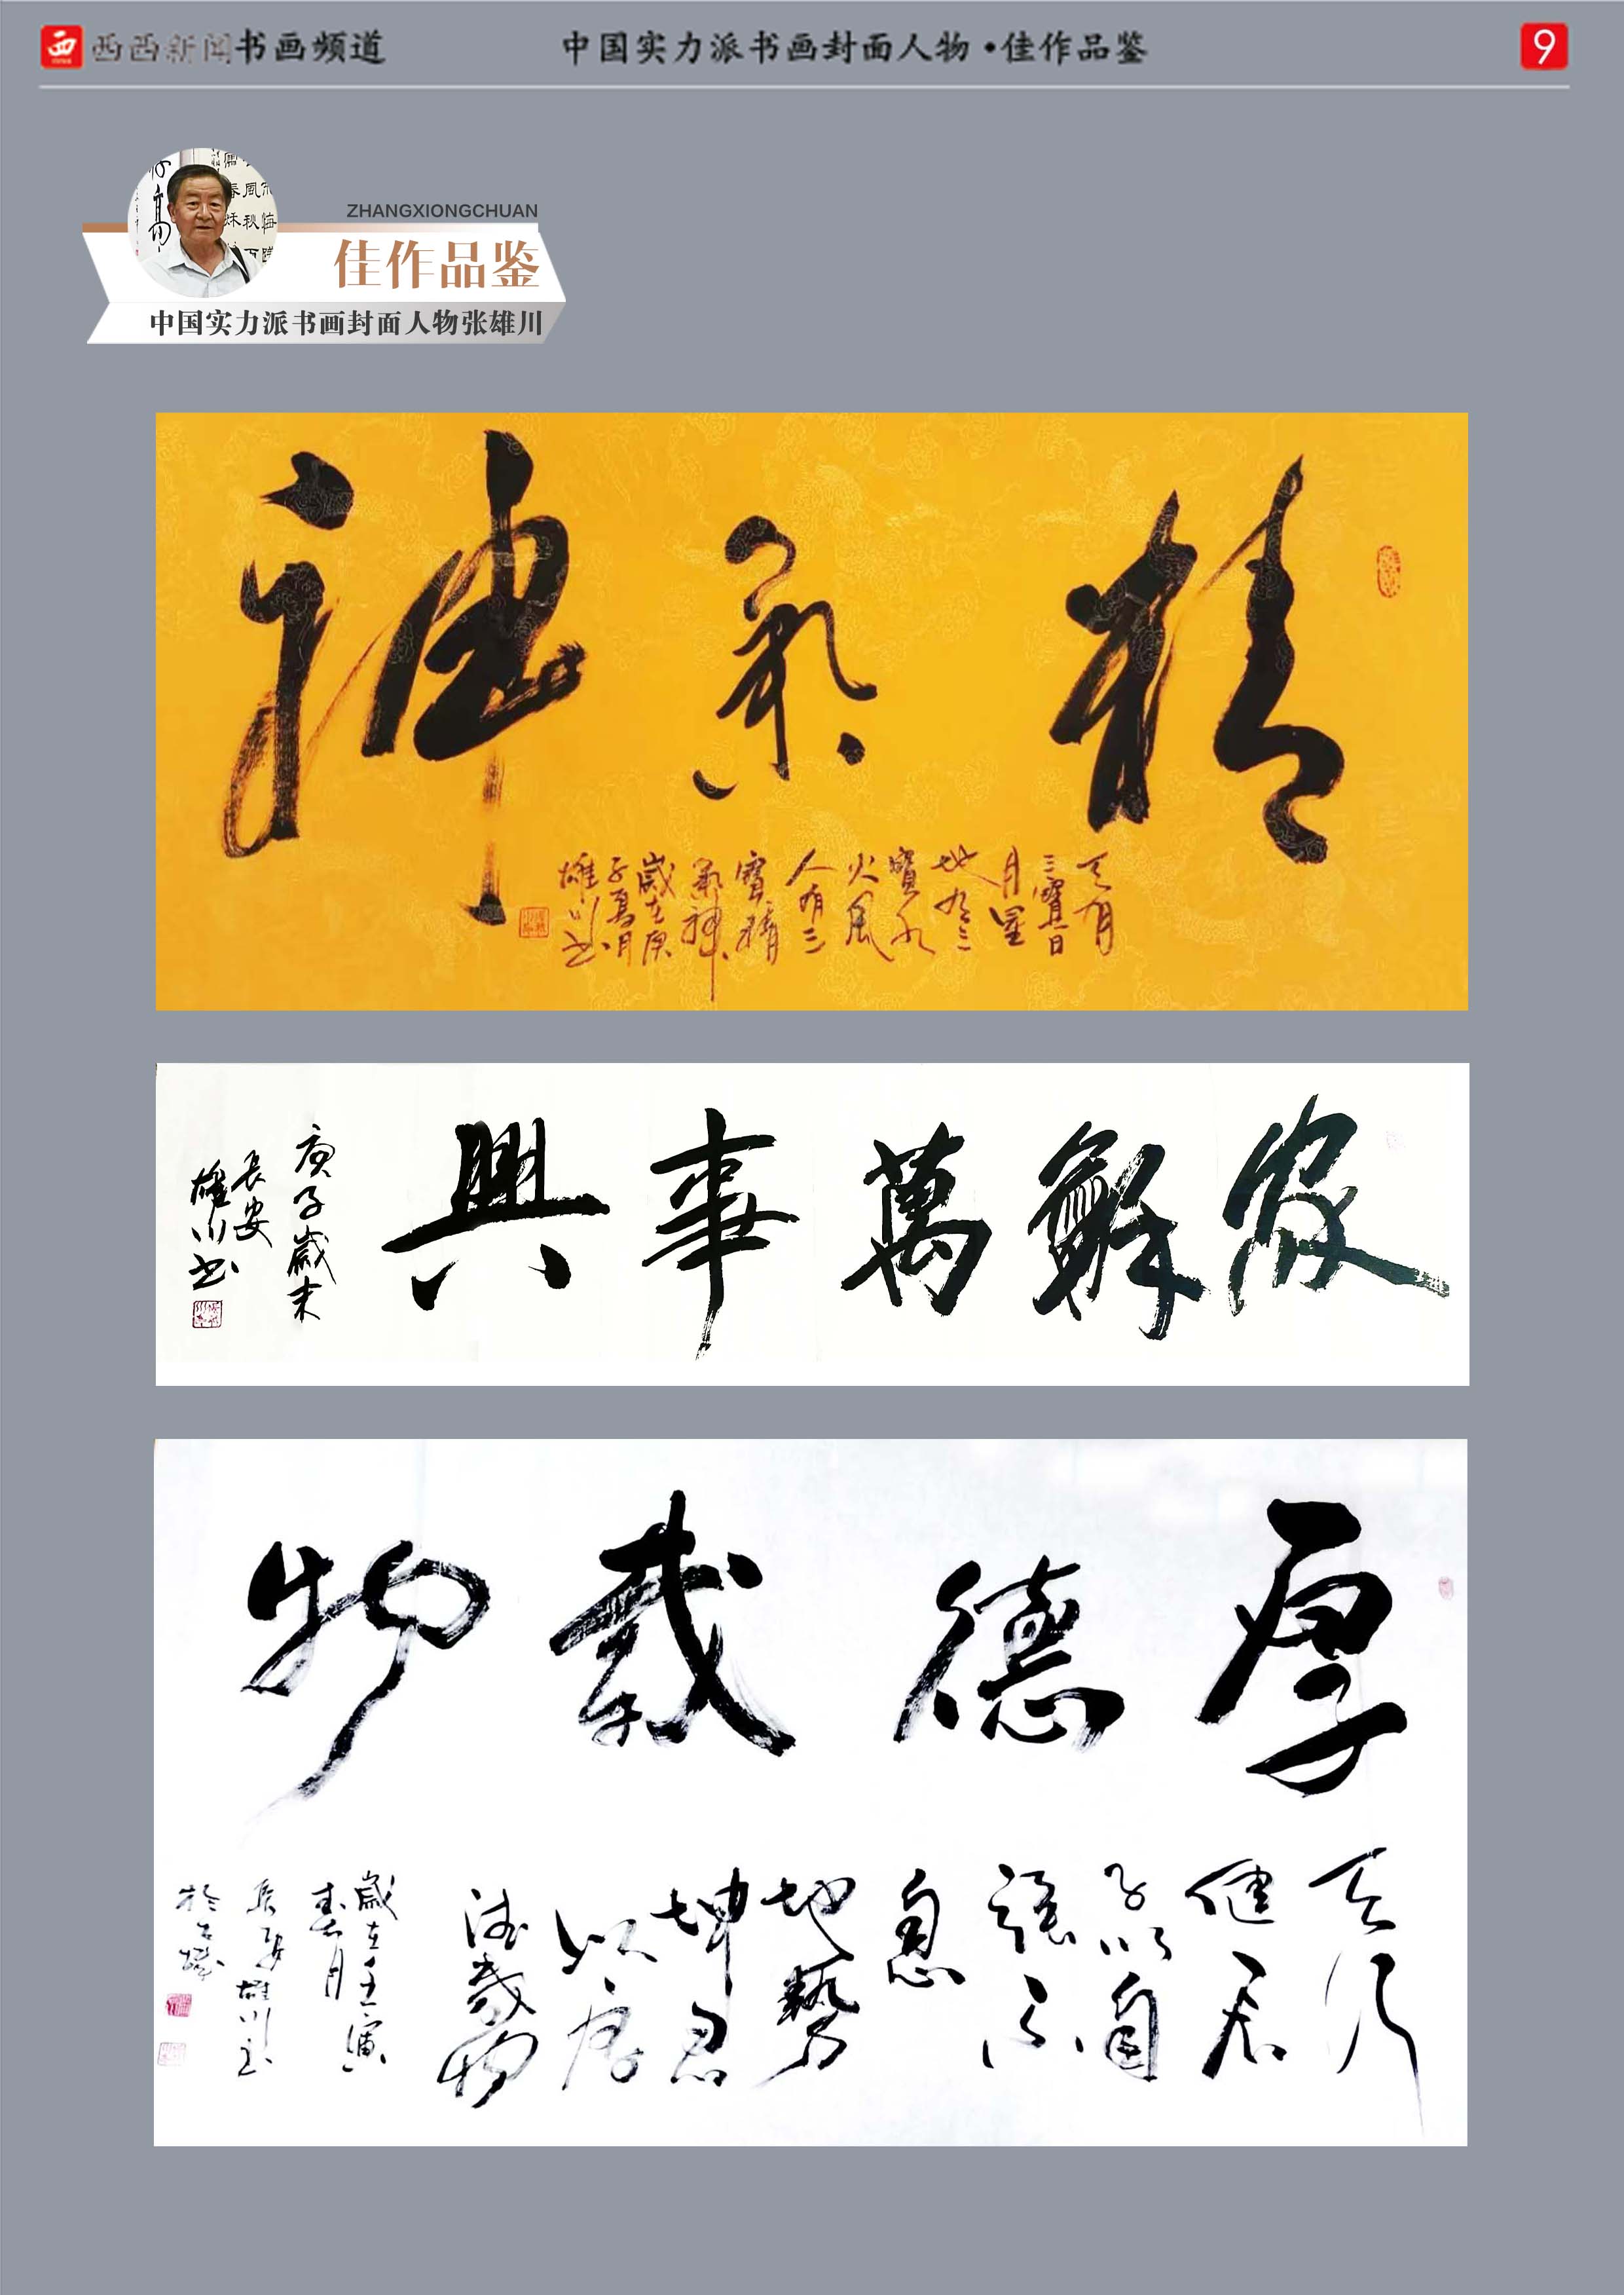 西西新闻书画频道
中国实力派书画封面人物·佳作品鉴
9
ZHANGXIONGCHUAN
佳作品鉴
中国实力派书画封面人物张雄川
精氣神
天有
三寶日
月星
地有三
寶水
火風
人有三
寶精
氣神
歲在庚
子夏月
雄川书
家龢萬事興
庚子歲末
長安
雄川书
厚德載物
天行
健君
子以自
强不
息
地勢
坤君
以厚
德載物
歲在壬寅
春月
長安雄川书